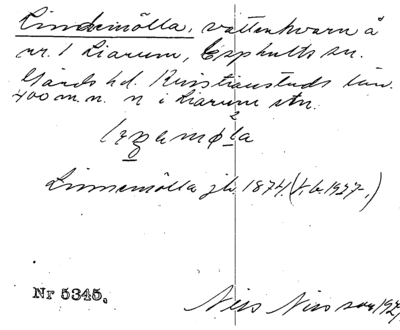 Lindemölla, vattenkvarn å
nr. 1 Liarum, Esphults sn.
Gärds hd. Kristianstads län.
400 m. n. n i Liarum stn.
2
Linnemölla jb. 1874. (t. b. 1927.)
Nr 5345.
Nils Nilsson 192